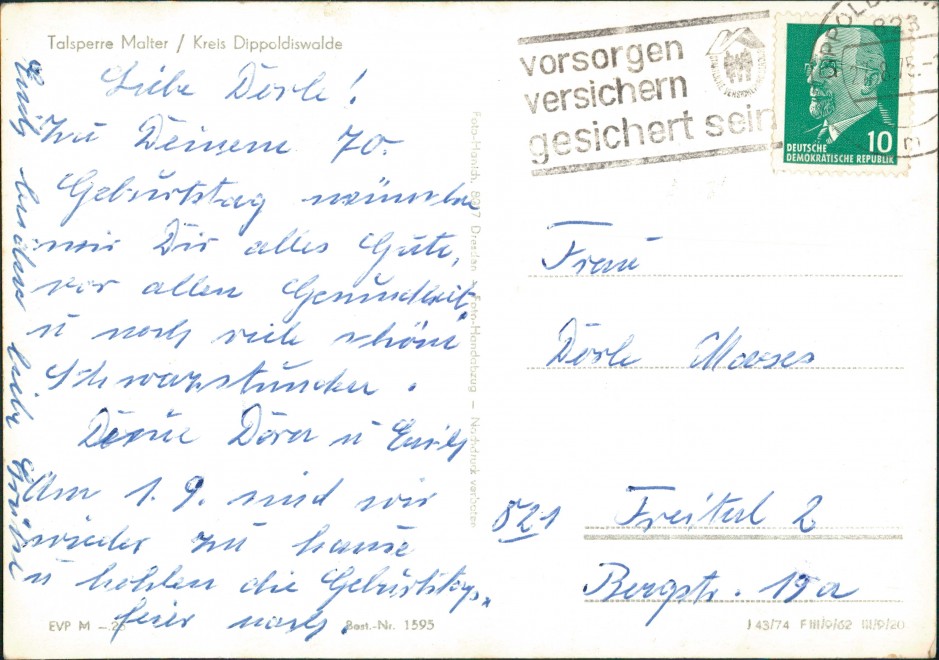 Talsperre Malter / Kreis Dippoldiswalde
Liebe Dörle!
Zu Deinem 70.
Geburtstag wünschen
wir Dir alles Gute,
vor allen Gesundheit,
u noch viele schöne
Schwarzstunden.
Deine Dora u Emily
Am 1. 9. sind wir
wieder zu hause
u hohlen die Geburtstags-
feier nach.
Euch beiden liebe Grüße
EVP M –.25
Best.-Nr. 1595
Foto-Handabzug – Nachdruck verboten
vorsorgen
versichern
gesichert sein
823
DEUTSCHE
DEMOKRATISCHE REPUBLIK
10
Frau
Dörle
821 Freital 2
Bergstr. 15a
J 43/74 F III/9/62 III/9/20